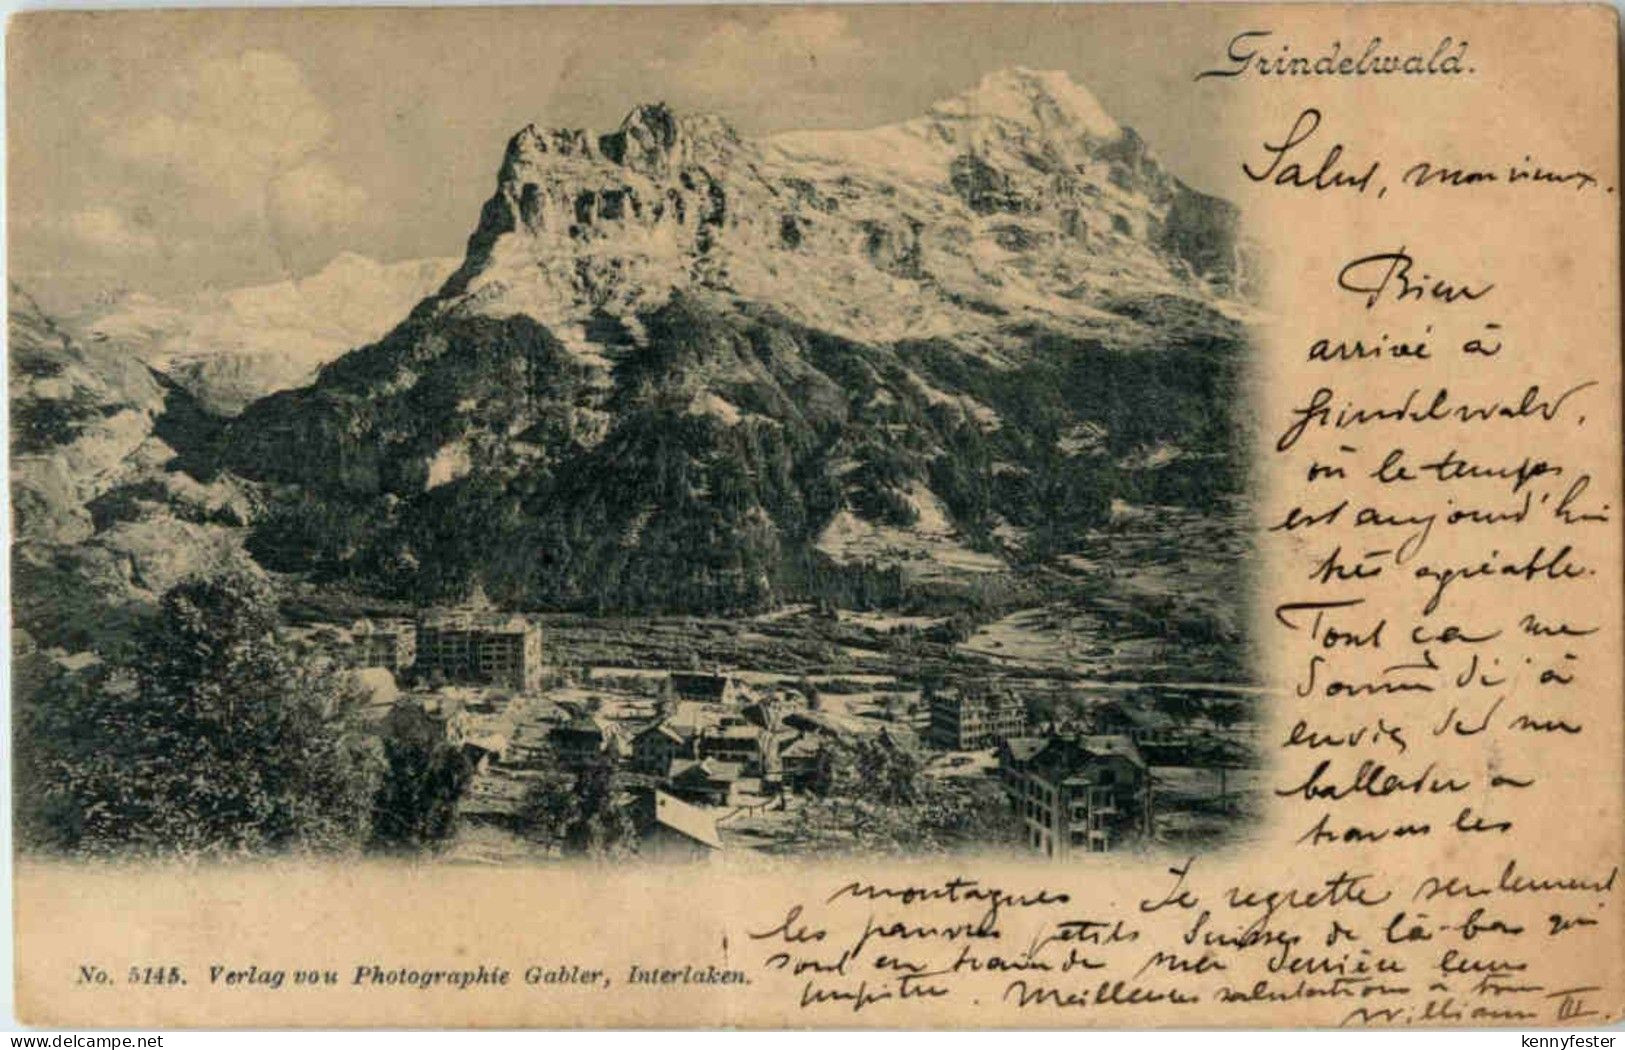 Grindelwald.
Salut, mon vieux.
Bien
arrivé à
Grindelwald,
où le temps
est aujourd'hui
très agréable.
Tout ça me
à
envie de me
ballader à
travers les
montagnes. Je regrette seulement
les pauvres petits Suisses de là-bas qui
sont en train de derrière leurs
pupitres. Meilleures salutations à tous
William III.
No. 5145. Verlag von Photographie Gabler, Interlaken.
kennyfester